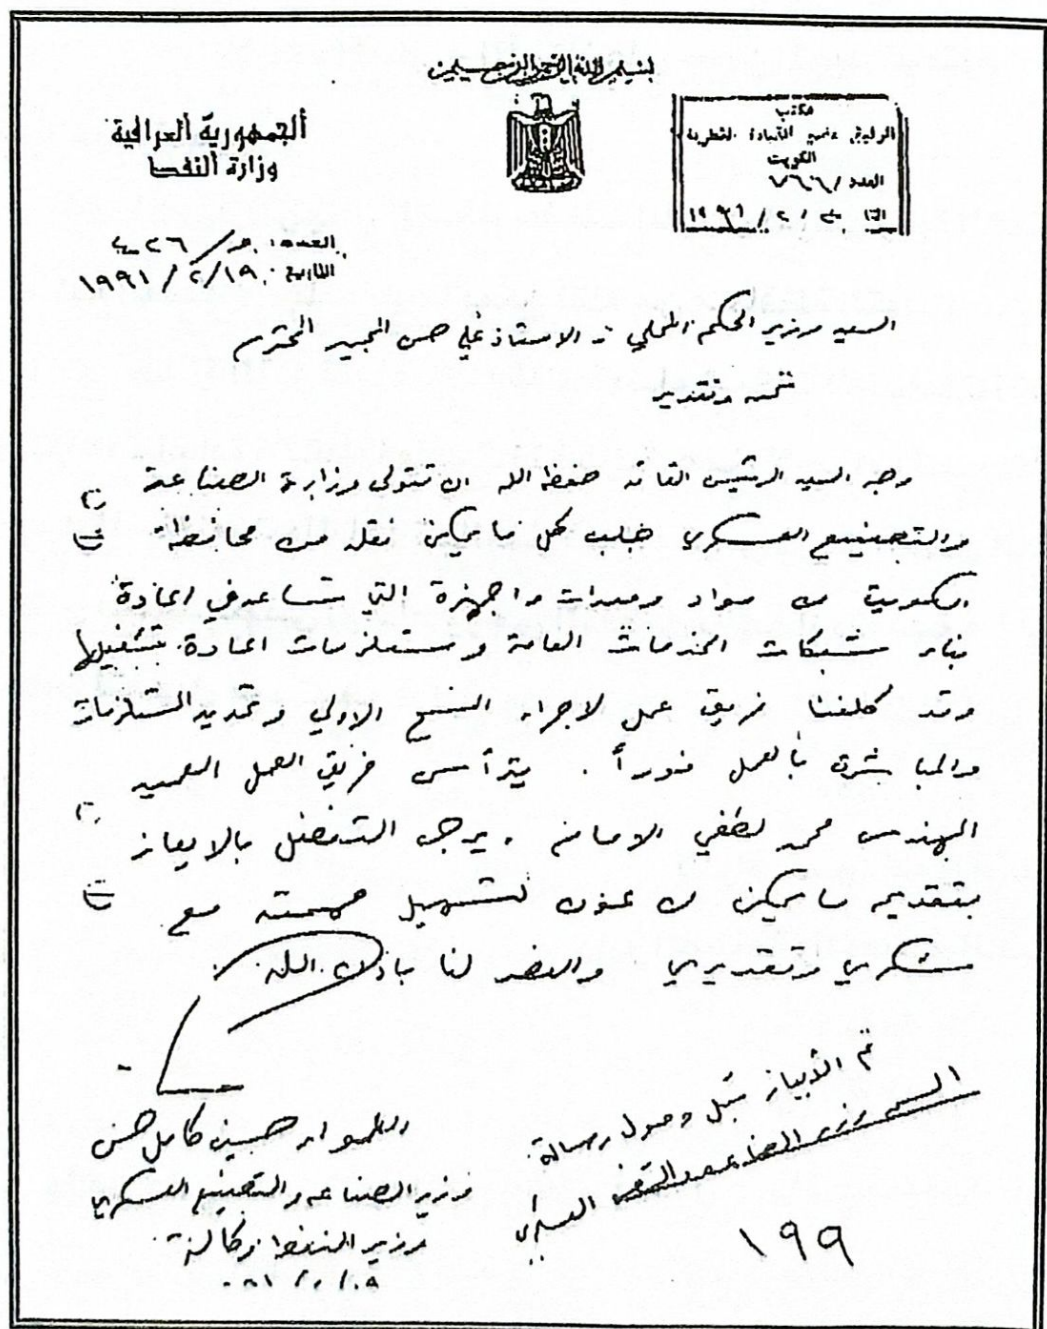 بسم الله الرحمن الرحيم
الجمهورية العراقية
وزارة النفط
مكتب
الرفيق عضو القيادة القطرية
الكويت
العدد / ٧٦٦
١٩٩١ / ٢ /
العدد:
التاريخ: ١٩ / ٢ / ١٩٩١
السيد وزير الحكم المحلي - الاستاذ علي حسن المجيد المحترم
تحية وتقدير
وجه السيد الرئيس القائد حفظه الله ان تتولى وزارة الصناعة
والتصنيع العسكري جلب كل ما يمكن نقله من محافظة
الكويت من مواد ومعدات واجهزة التي تساعد في اعادة
بناء شبكات الخدمات العامة ومستلزمات اعادة تشغيلها
وقد كلفنا فريق عمل لاجراء المسح الاولي وتحديد المستلزمات
والمباشرة بالعمل فوراً . يترأس فريق العمل العميد
المهندس محمد لطفي الامام . يرجى التفضل بالايعاز
بتقديم ما يمكن من عون لتسهيل مهمته مع
شكري وتقديري والنصر لنا باذن الله .
حسين كامل حسن
وزير الصناعة والتصنيع العسكري
وزير النفط وكالة
تم الايعاز قبل وصول رسالة
السيد وزير الصناعة والتصنيع العسكري
١٩٩